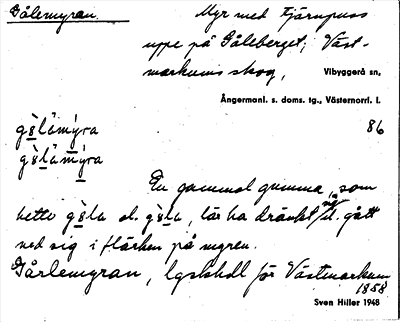 Gålemyran.
Myr med tjärnpuss
uppe på Gåleberget; Väst-
markums skog,
Vibyggerå sn,
Ångermanl. s. doms. tg., Västernorrl. l.
86
gɘ̀lämýra
gɘ̀lämýra
En gammal gumma, som
hette gɘ̀la el. gɘ̀la, lär ha dränkt sig el. gått
ned sig i flärken på myren.
Gårlemyran, lgskhdl för Västmarkum
1858
Sven Hiller 1948